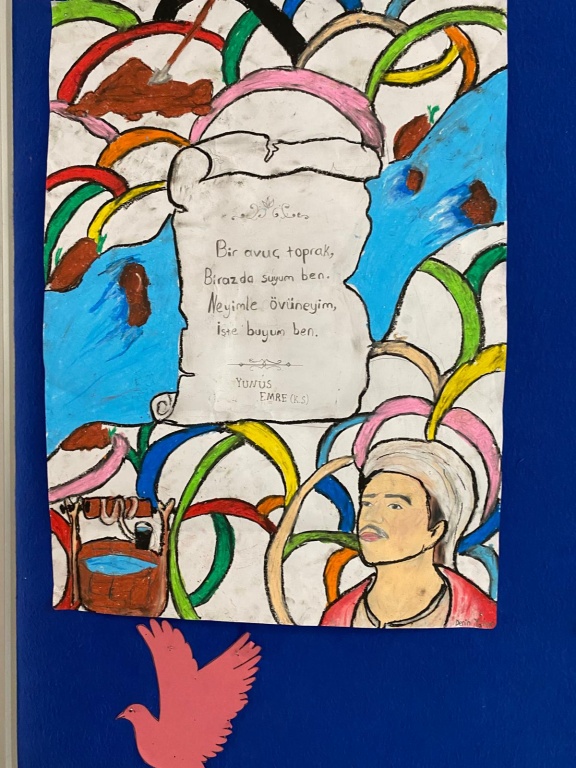 Bir avuç toprak,
Biraz da suyum ben.
Neyimle övüneyim,
İşte buyum ben.
YUNUS
EMRE (K.S)